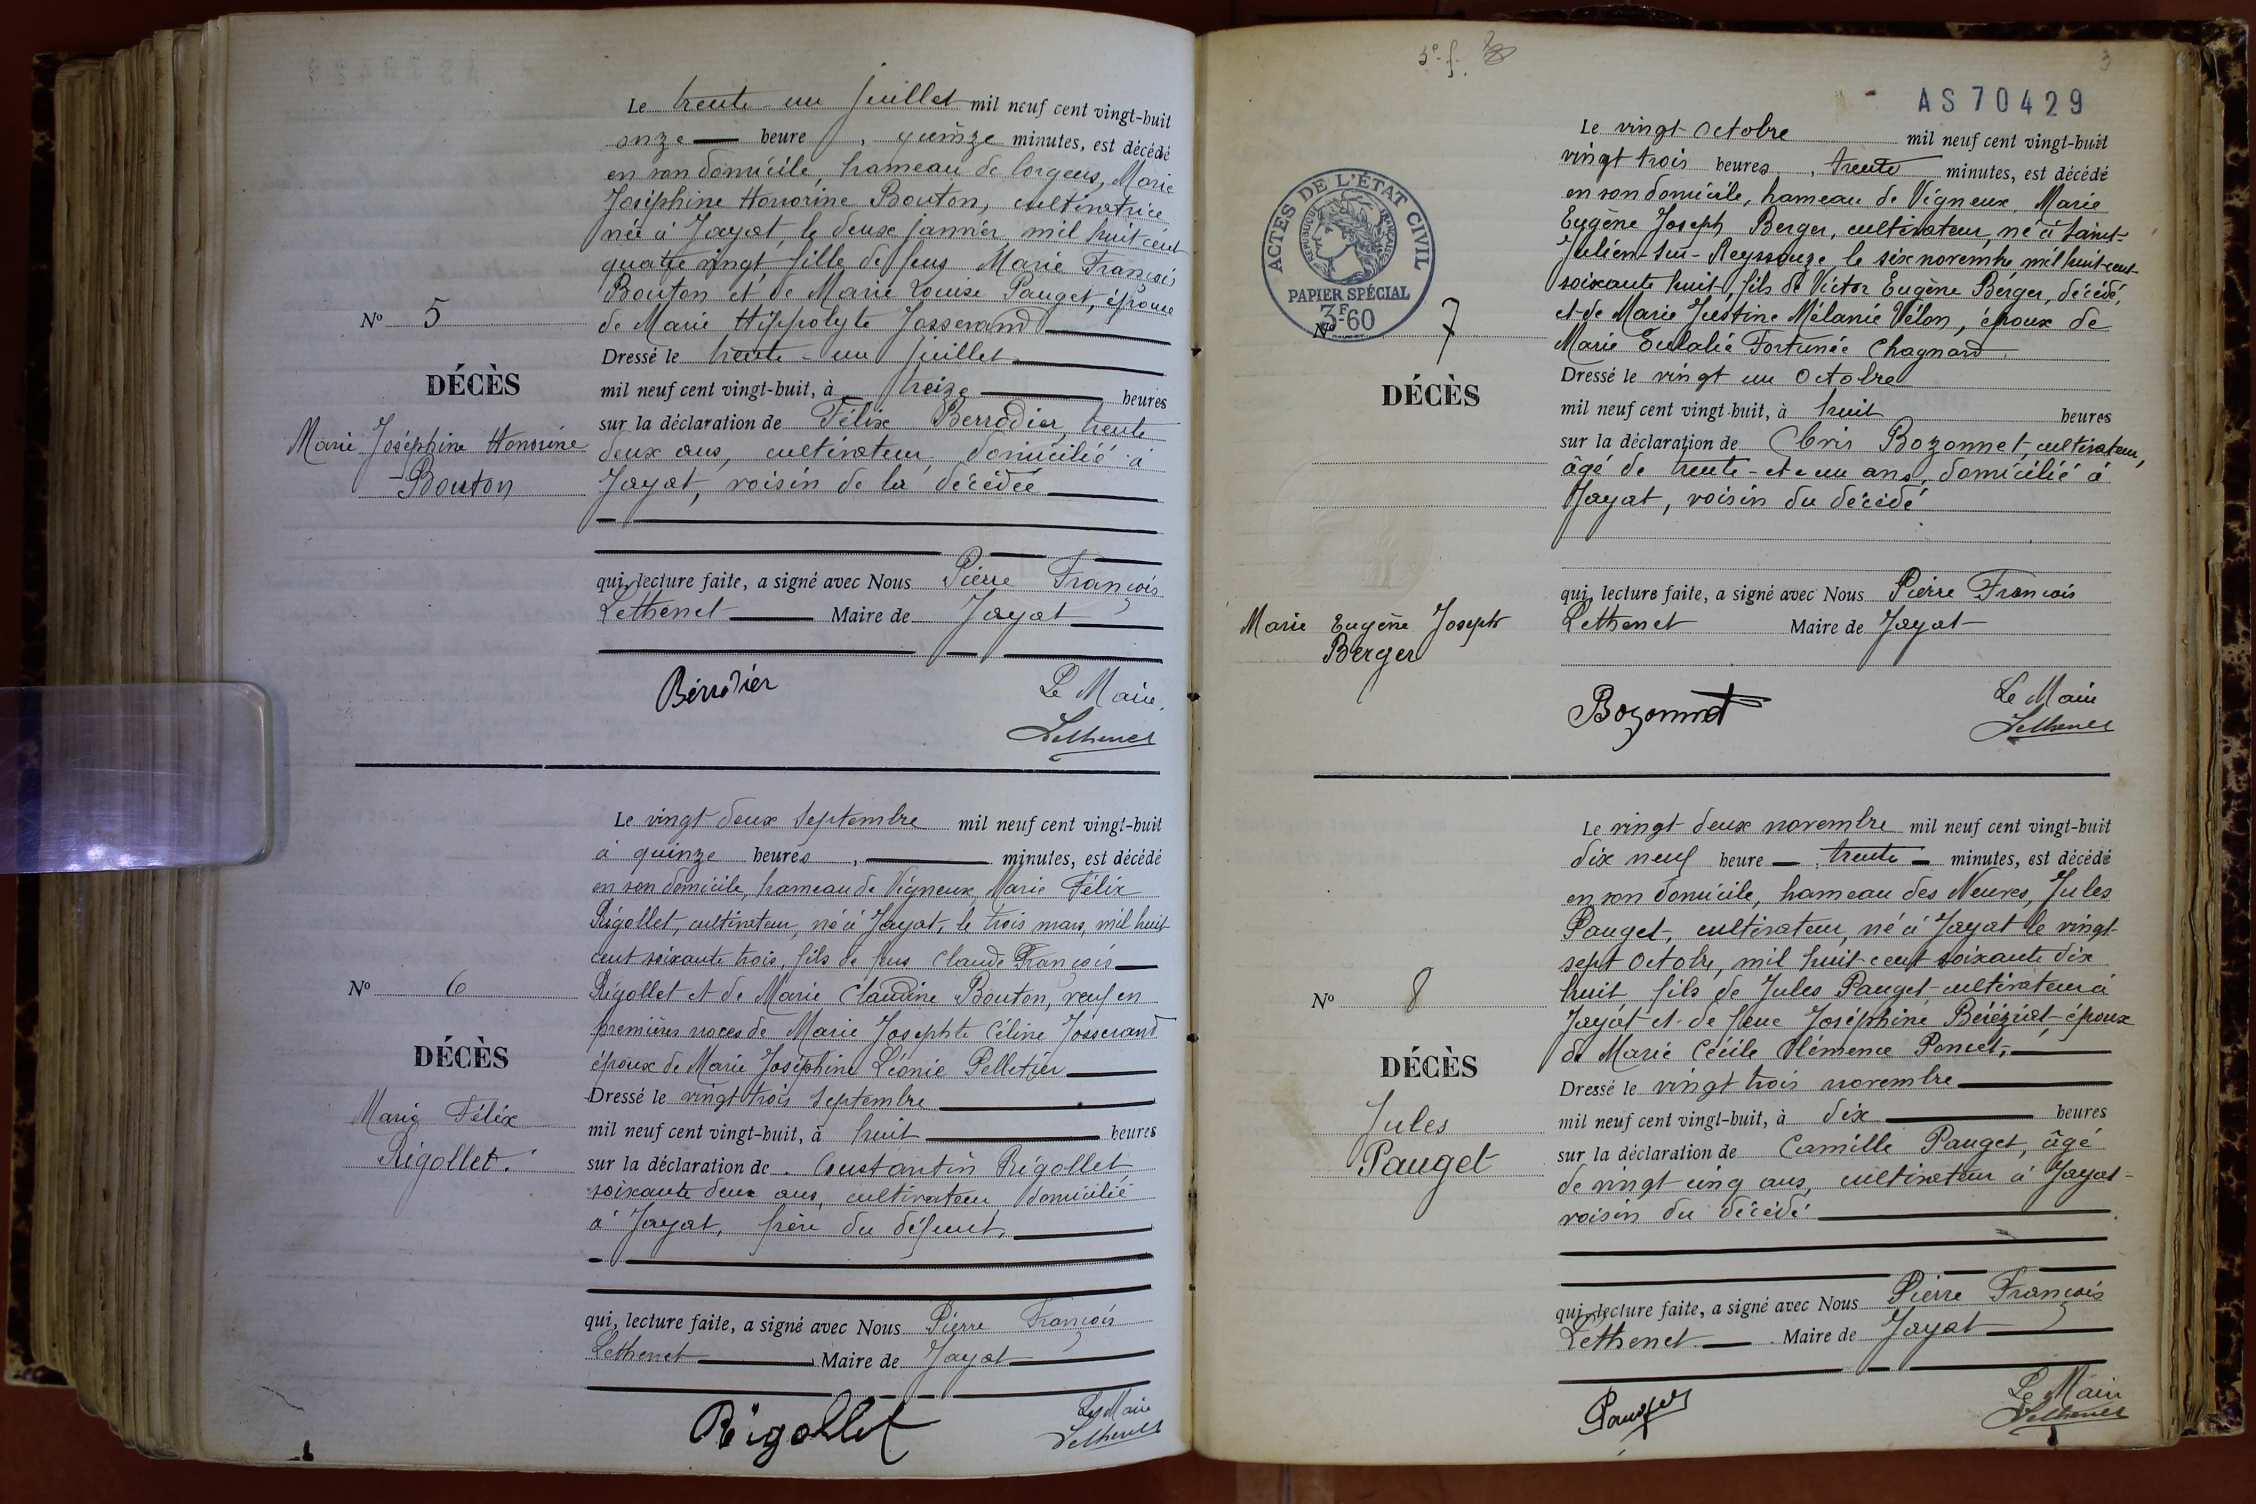 Le trente-un juillet mil neuf cent vingt-huit
onze heure, quinze minutes, est décédé
en son domicile, hameau de Corgeus, Marie
Joséphine Honorine Bouton, cultivatrice
née à Jayat, le deux janvier, mil huit cent
quatre vingt, fille de feus Marie François
Bouton et de Marie Louise Pauget, épouse
de Marie Hippolyte Josserand
Nº 5
Dressé le trente-un juillet
DÉCÈS
mil neuf cent vingt-huit, à treize heures
sur la déclaration de Félix Berrodier, trente
Marie Joséphine Honorine
Bouton
deux ans, cultivateur domicilié à
Jayat, voisin de la décédée
qui, lecture faite, a signé avec Nous Pierre François
Lethenet Maire de Jayat
Berrodier Le Maire,
Lethenet
Le vingt deux septembre mil neuf cent vingt-huit
à quinze heures, minutes, est décédé
en son domicile, hameau de Vigneux, Marie Félix
Rigollet, cultivateur, né à Jayat, le trois mars, mil huit
cent soixante trois, fils de feus Claude François
Nº 6
Rigollet et de Marie Claudine Bouton, veuf en
premières noces de Marie Josephte Céline Josserand
DÉCÈS
époux de Marie Joséphine Léonie Pelletier
Dressé le vingt trois septembre
Marie Félix
Rigollet.
mil neuf cent vingt-huit, à huit heures
sur la déclaration de Constantin Rigollet
soixante deux ans, cultivateur domicilié
à Jayat, frère du défunt,
qui, lecture faite, a signé avec Nous Pierre François
Lethenet Maire de Jayat
Rigollet Le Maire
Lethenet
3e f.
3
AS 70429
Le vingt octobre mil neuf cent vingt-huit
vingt trois heures, trente minutes, est décédé
en son domicile, hameau de Vigneux, Marie
Eugène Joseph Berger, cultivateur, né à Saint-
Julien-sur-Reyssouze le six novembre mil huit cent
soixante huit, fils de Victor Eugène Berger, décédé,
et de Marie Justine Mélanie Vélon, époux de
Marie Eulalie Fortunée Chagnard
ACTES DE L'ÉTAT CIVIL
RÉPUBLIQUE FRANÇAISE
PAPIER SPÉCIAL
3F60
Nº 7
Dressé le vingt un octobre
DÉCÈS
mil neuf cent vingt-huit, à huit heures
sur la déclaration de Cloris Bozonnet, cultivateur,
âgé de trente-et-un ans, domicilié à
Jayat, voisin du décédé
qui, lecture faite, a signé avec Nous Pierre François
Marie Eugène Joseph
Berger
Lethenet Maire de Jayat
Bozonnet Le Maire
Lethenet
Le vingt deux novembre mil neuf cent vingt-huit
dix neuf heure, trente minutes, est décédé
en son domicile, hameau des Neuves, Jules
Pauget, cultivateur, né à Jayat le vingt
sept octobre, mil huit cent soixante dix
Nº 8
huit fils de Jules Pauget cultivateur à
Jayat et de feue Joséphine Béréziat époux
de Marie Cécile Clémence Poncet,
DÉCÈS
Dressé le vingt trois novembre
Jules
Pauget
mil neuf cent vingt-huit, à dix heures
sur la déclaration de Camille Pauget, âgé
de vingt cinq ans, cultivateur à Jayat
voisin du décédé
qui, lecture faite, a signé avec Nous Pierre François
Lethenet Maire de Jayat
Pauget Le Maire
Lethenet